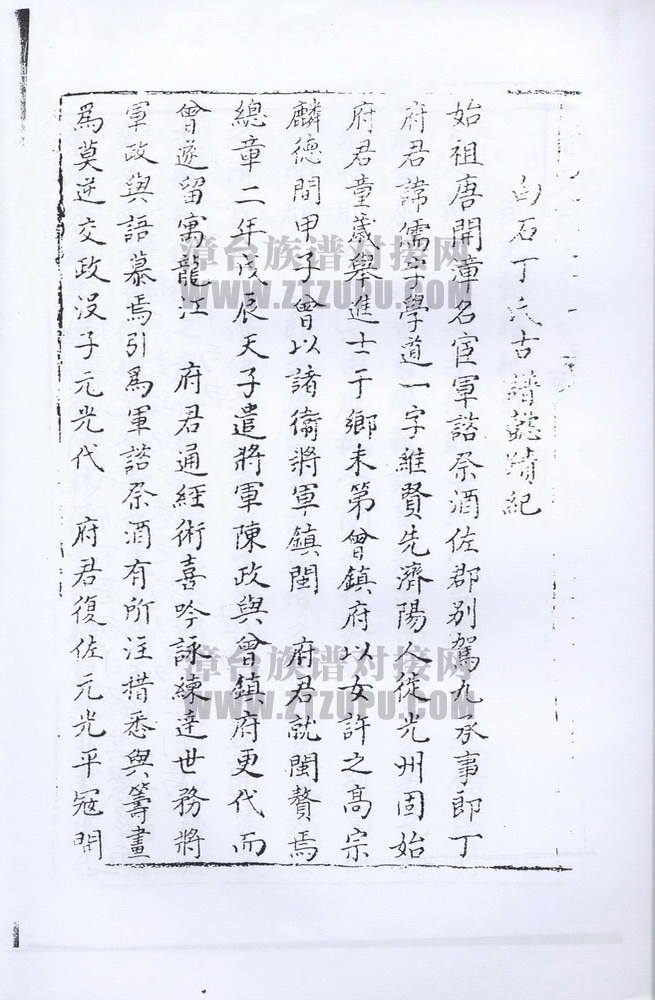 白石丁氏古譜懿蹟紀
始祖唐開漳名宦軍諮祭酒佐郡别駕九承事郎丁
府君諱儒字學道一字維賢先濟陽人徙光州固始
府君童歲舉進士于鄉未第曾鎮府以女許之高宗
麟德間甲子曾以諸衛將軍鎮閩 府君就閩贅焉
總章二年戊辰天子遣將軍陳政與曾鎮府更代而
曾遂留寓龍江 府君通經術喜吟詠練達世務將
軍政與語慕焉引爲軍諮祭酒有所注措悉與籌畫
爲莫逆交政没子元光代 府君復佐元光平冦開
漳台族谱对接网
www.ztzupu.com
漳台族谱对接网
www.ztzupu.com